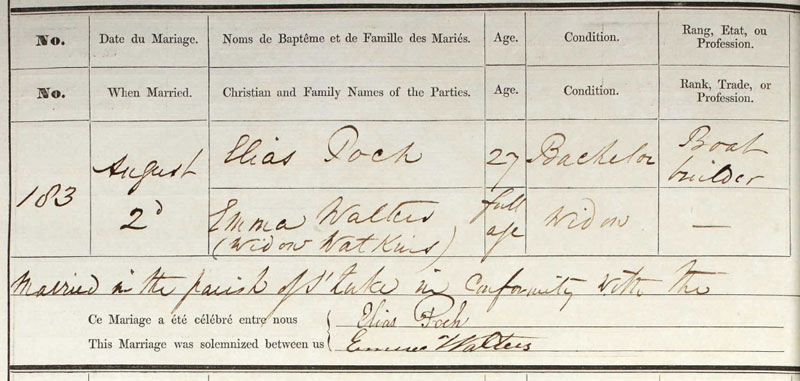 No. Date du Mariage. Noms de Baptême et de Famille des Mariés. Age. Condition. Rang, Etat, ou Profession.
No. When Married. Christian and Family Names of the Parties. Age. Condition. Rank, Trade, or Profession.
183 August 2d Elias Poch 27 Bachelor Boat builder
Emma Walters (Widow Watkins) full age Widow —
Married in the parish of St Luke in Conformity with the
Ce Mariage a été célébré entre nous Elias Poch
This Marriage was solemnized between us Emma Walters